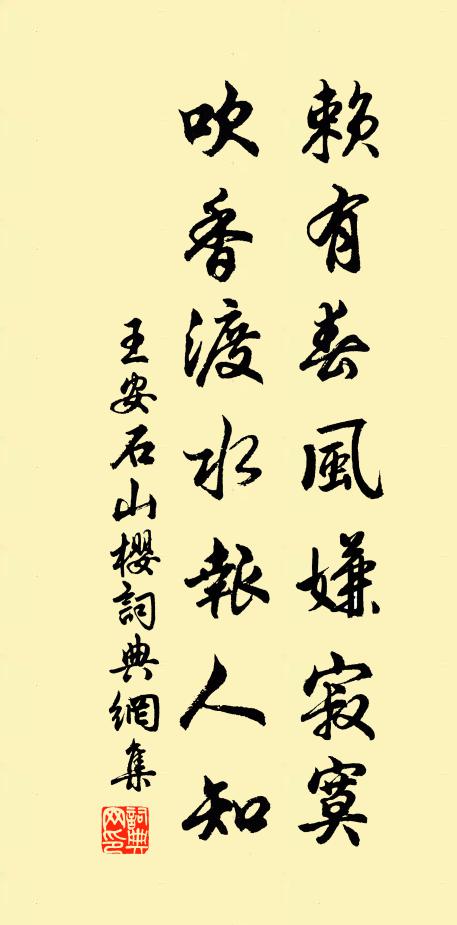 賴有春風嫌寂寞
吹香渡水報人知
王安石山櫻詞典網集
詞典
网印